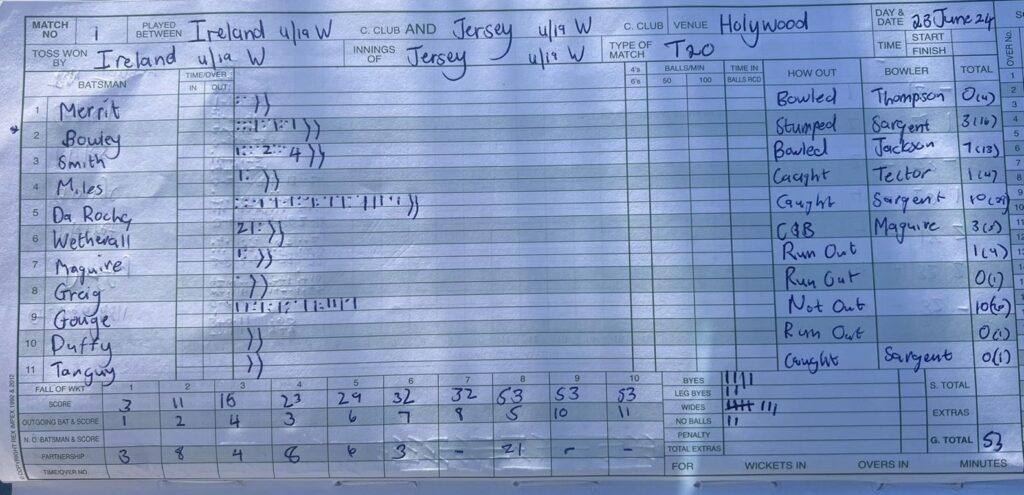 MATCH NO 1 PLAYED BETWEEN Ireland u/19 W C. CLUB AND Jersey u/19 W C. CLUB VENUE Holywood DAY & DATE 23 June 24
TOSS WON BY Ireland u/19 W INNINGS OF Jersey u/19 W TYPE OF MATCH T20 TIME START FINISH OVER No.
BATSMAN TIME/OVER IN OUT 4's 6's BALLS/MIN 50 100 TIME IN BALLS RCD HOW OUT BOWLER TOTAL
1 Merrit Bowled Thompson 0(4)
2 Bowley Stumped Sargent 3(16)
3 Smith 1 2 4 Bowled Jackson 7(13)
4 Miles 1 Caught Tector 1(4)
5 Da Rocha Caught Sargent
6 Wetherall 2 1 C&B Maguire 3(5)
7 Maguire 1 Run Out 1(4)
8 Greig Run Out 0(1)
9 Gouge Not Out
10 Duffy Run Out 0(1)
11 Tanguy Caught Sargent 0(1)
FALL OF WKT 1 2 3 4 5 6 7 8 9 10
SCORE 3 11 15 23 29 32 32 53 53 53
OUTGOING BAT & SCORE 1 2 4 3 6 7 8 5 10 11
N. O. BATSMAN & SCORE
PARTNERSHIP 3 8 4 8 6 3 - 21 - -
TIME/OVER NO.
BYES S. TOTAL
LEG BYES
WIDES EXTRAS
NO BALLS
PENALTY G. TOTAL 53
TOTAL EXTRAS
FOR WICKETS IN OVERS IN MINUTES
COPYRIGHT REX IMPEX 1992 & 2012